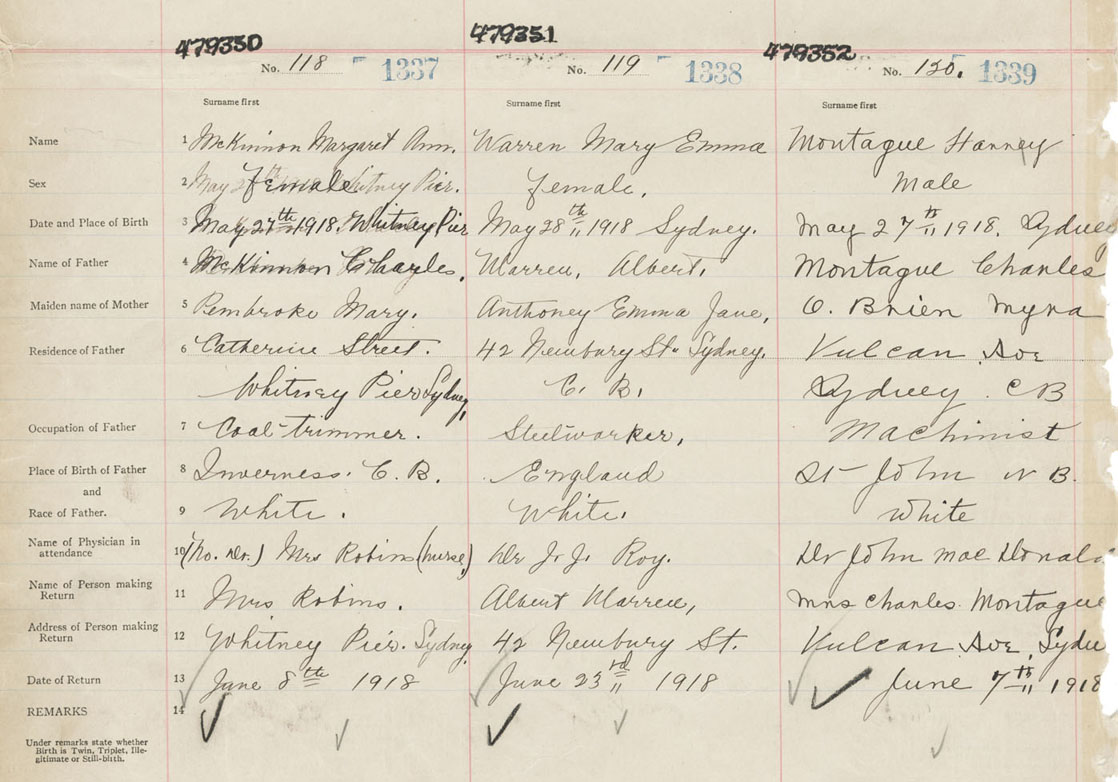 479350 479351 479352
No. 118 1337 No. 119 1338 No. 120. 1339
Surname first Surname first Surname first
Name 1 McKinnon Margaret Ann. Warren Mary Emma Montague Harvey
Sex 2 female Whitney Pier. female. Male
Date and Place of Birth 3 May 27th 1918. Whitney Pier May 28th 1918 Sydney. May 27th 1918. Sydney
Name of Father 4 McKinnon Charles. Warren, Albert. Montague Charles
Maiden name of Mother 5 Pembroke Mary. Anthoney Emma Jane, O. Brien Myra
Residence of Father 6 Catherine Street. 42 Newbury St. Sydney. Vulcan Ave
Whitney Pier Sydney, C. B. Sydney. CB
Occupation of Father 7 Coal-trimmer. Steelworker, Machinist
Place of Birth of Father 8 Inverness. C. B. England St John N B.
and
Race of Father. 9 White. White. White
Name of Physician in
attendance 10 (No. Dr.) Mrs Robins (nurse) Dr J. J. Roy. Dr John Mac Donald
Name of Person making
Return 11 Mrs Robins. Albert Warren, Mrs Charles. Montague
Address of Person making
Return 12 Whitney Pier. Sydney 42 Newbury St. Vulcan Ave, Sydn
Date of Return 13 June 8th 1918 June 23rd 1918 June 7th 1918
REMARKS 14
Under remarks state whether
Birth is Twin, Triplet, Ille-
gitimate or Still-birth.